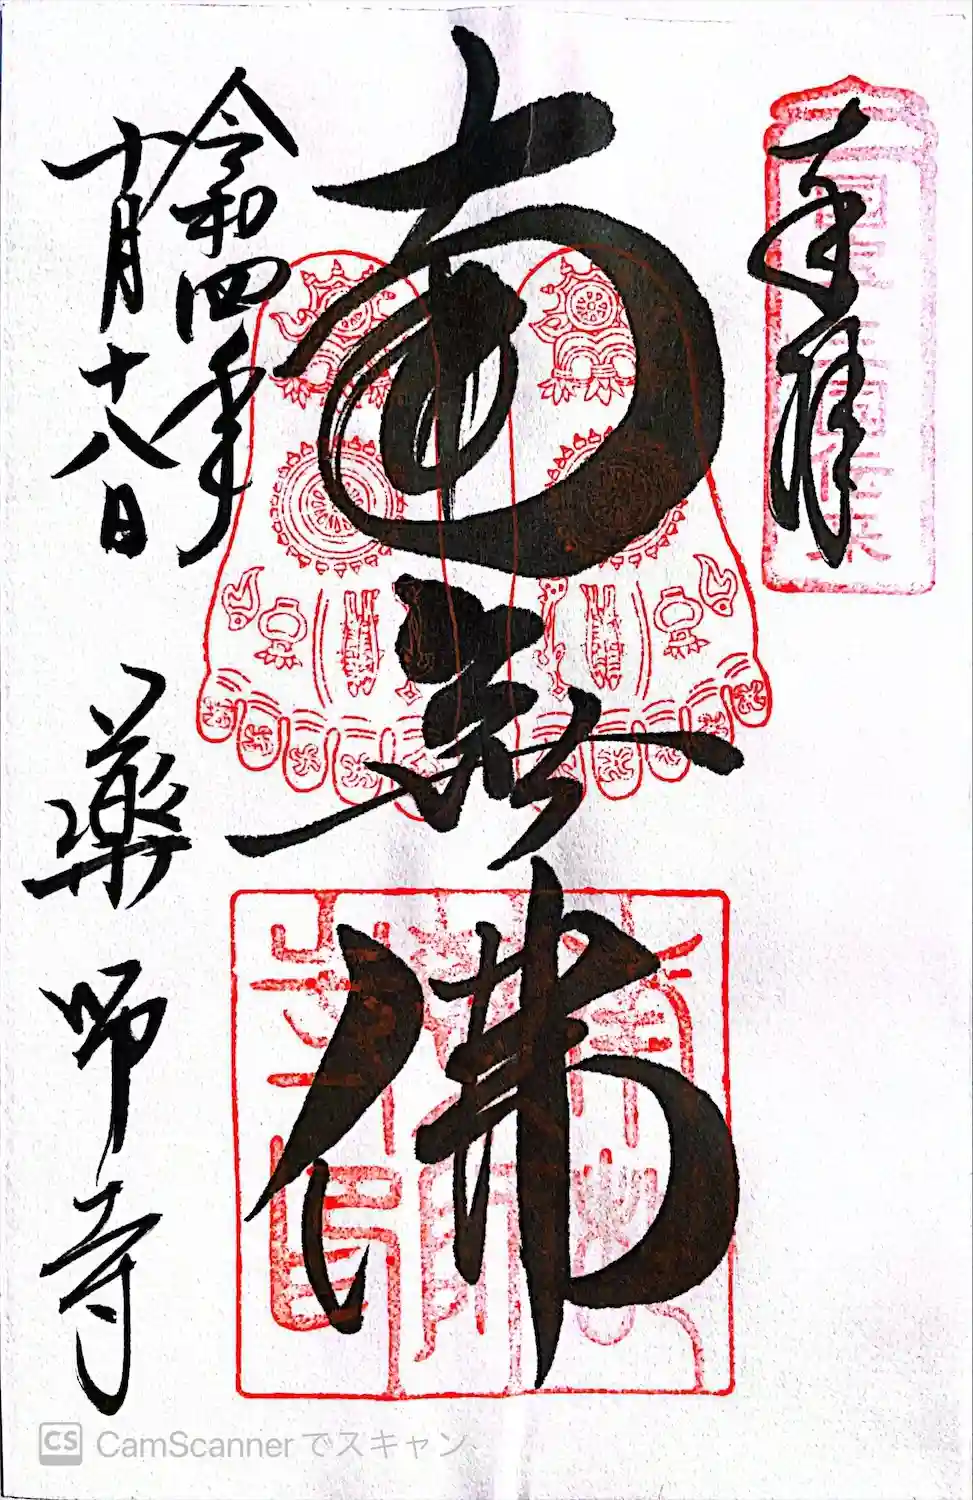 奉拝
南無佛
令和四年
十月十八日
薬師寺
CS CamScannerでスキャン